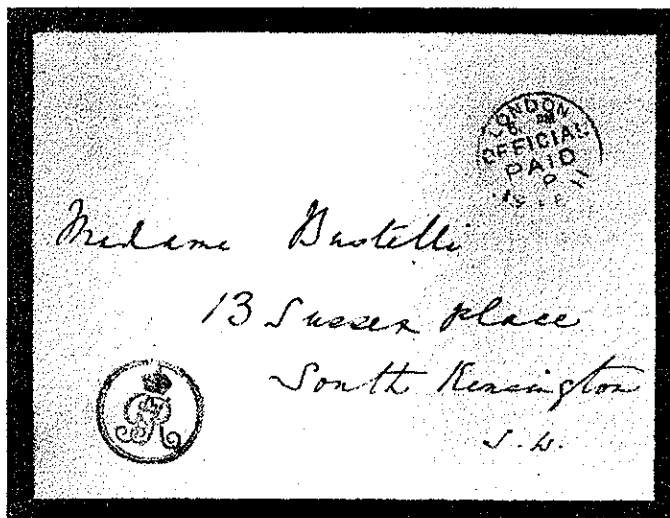 LONDON
6. PM
OFFICIAL
PAID
P
11
Madame Bustelli
13 Sussex Place
South Kensington
S.W.
GR